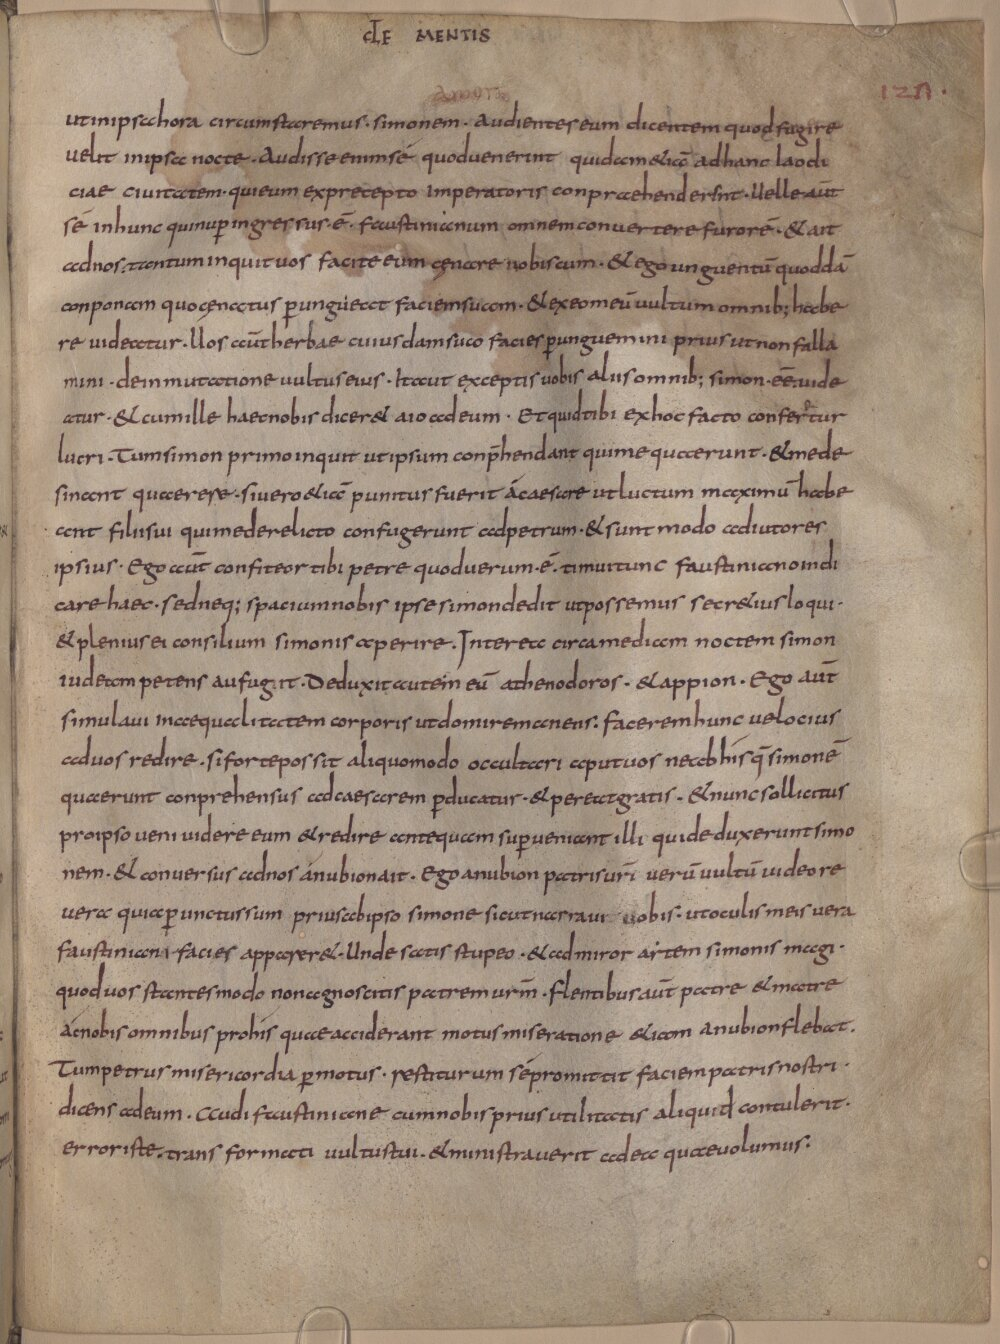 CLEMENTIS
121
ut in ipsa hora circumstaremus · simonem · Audientes eum dicentem quod fugire
velit in ipsa nocte · Audisse enim sé quod venerint quidam & iā ad hanc laodi
ciae civitatem · qui eum ex precepto imperatoris conpraehenderint · Uelle aūt
sé in hunc qui nup ingressus · ē · faustinianum omnem convertere furorē · & ait
ad nos · tantum inquit vos facite eum cenare nobiscum · & ego unguentū quoddā
conponam quo cenatus p̄ungueat faciem suam · & ex eo meū vultum omnib; habe
re videatur · Uos aūt herbae cuiusdam suco facies p̄unguemini prius ut non falla
mini · de inmutatione vultus eius · Ita ut exceptis vobis aliis omnib; simon · eē vide
atur · & cum ille haec nobis dicer& aio ad eum · Et quid tibi ex hoc facto confertur
lucri · Tum simon primo inquit ut ipsum conp̄hendant qui me quaerunt · & me de
sinant quaerere · si vero & iā punitus fuerit á caesare ut luctum maximū habe
ant filii sui qui me derelicto confugerunt ad petrum · & sunt modo adiutores
ipsius · Ego aūt confiteor tibi petre quod verum · ē · timui tunc faustiniano indi
care haec · sed neq; spacium nobis ipse simon dedit ut possemus secr&ius loqui ·
& plenius ei consilium simonis aperire . Interea circa mediam noctem simon
iudeam petens aufugit · Deduxit autem eū athenodoros · & appion · Ego aūt
simulavi inaequalitatem corporis ut domi remanens : facerem hunc velocius
ad vos redire · si forte possit aliquomodo occultari aput vos ne ab his q̄ simonē
quaerunt conprehensus ad caesarem p̄ducatur · & pereat gratis · & nunc sollicitus
pro ipso veni videre eum & redire antequam superveniant illi qui deduxerunt simo
nem · & conversus ad nos ánubion ait · Ego anubion patris urī verū vultū video re
vera quia p̄unctus sum prius ab ipso simone sicut narravi vobis · ut oculis meis vera
faustiniani facies apparer& · Unde satis stupeo · & admiror artem simonis magi ·
quod vos stantes modo non agnoscitis patrem urm̄ · flentibus aūt patre & matre
ác nobis omnibus pro his quae acciderant motus miseratione & iam anubion flebat .
Tum petrus misericordia p̄motus · restiturum sé promittit faciem patris nostri ·
dicens ad eum · Audi faustiniane cum nobis prius utilitatis aliquid contulerit ·
error iste · transformati vultus tui · & ministraverit ad ea quae volumus :